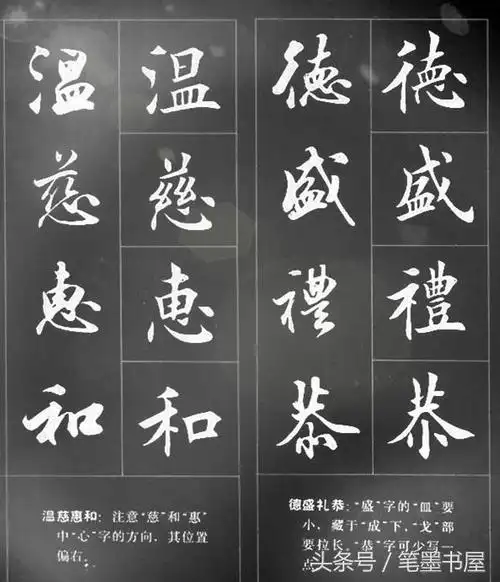 德盛禮恭
德盛禮恭
温慈惠和
温慈惠和
德盛礼恭：“盛”字的“皿”要
小，藏于“成”下，“戈”部
要拉长，“恭”字可少写一
点。
温慈惠和：注意“慈”和“惠”
中“心”字的方向，其位置
偏右。
头条号／笔墨书屋